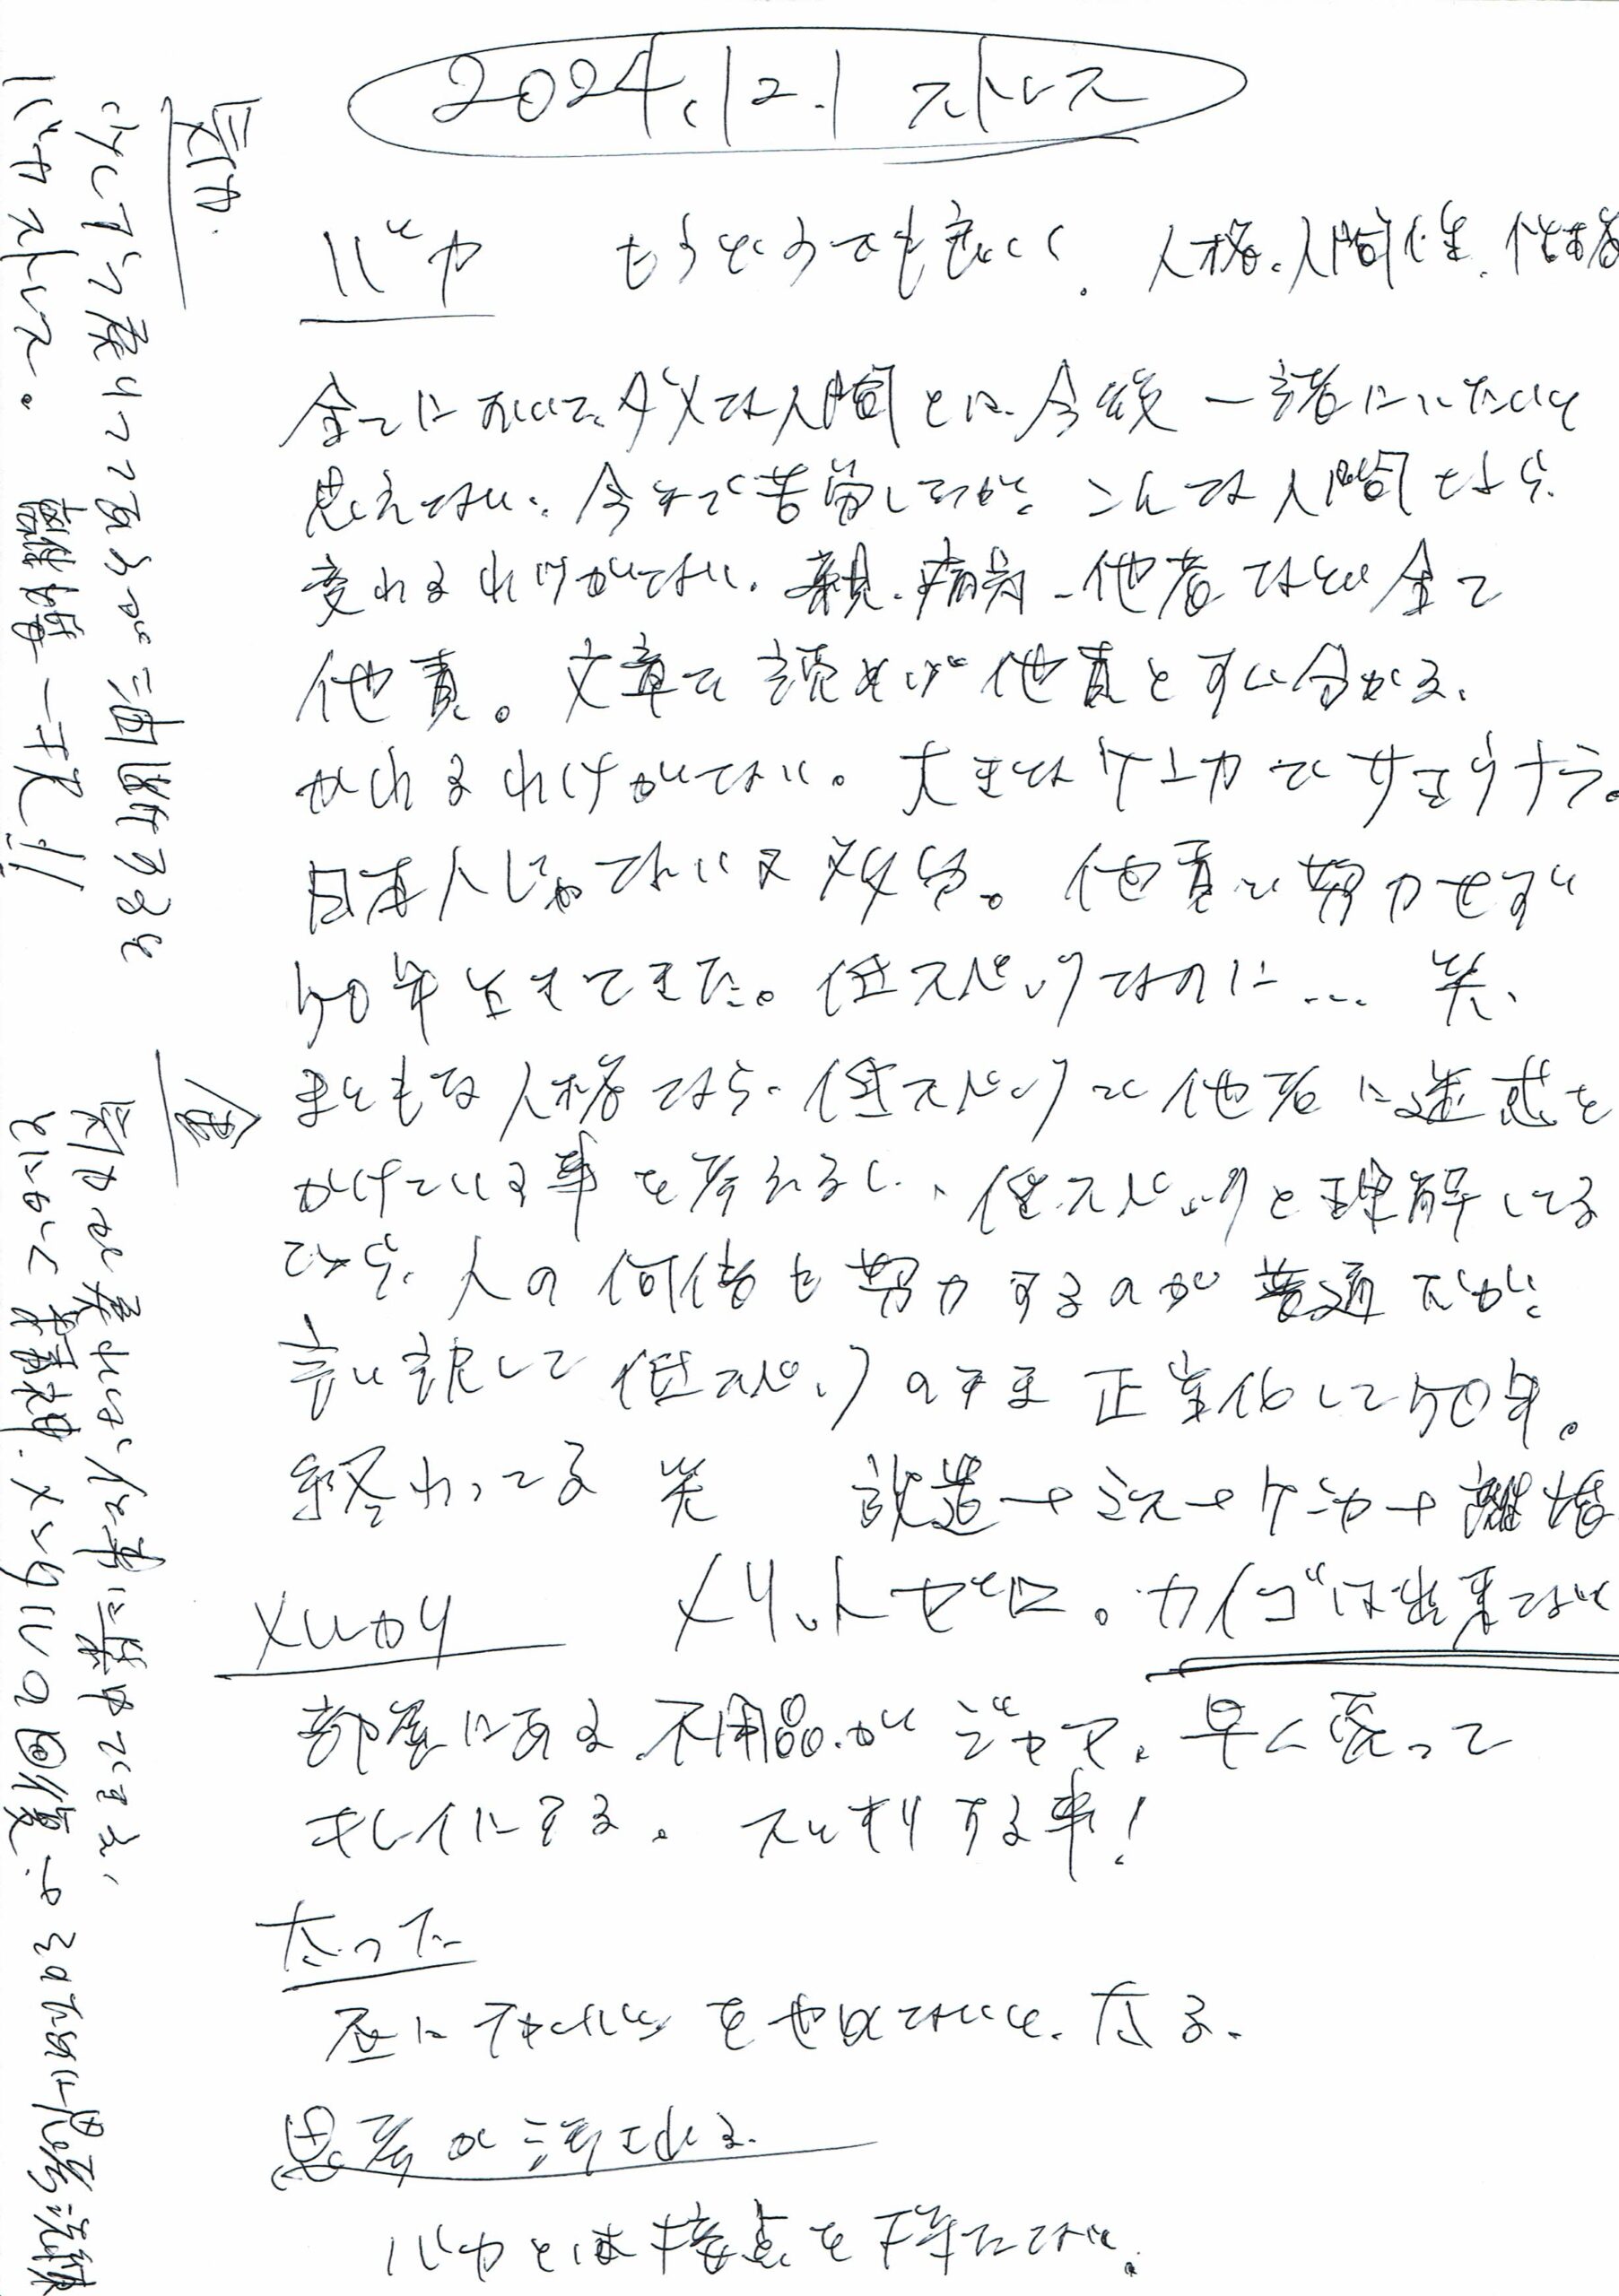 2024.12.1 ストレス
バカ もうどうでも良い、人格、人間性、性格
全てにおいて、ダメな人間とは、今後一緒にいたいと
思えない、今まで苦労してるが、こんな人間なら、
変わるわけがない、親、病気、他者など全て
他責。文章で読めば他責とすぐ分かる、
かわるわけがない。大きなケンカでサヨウナラ。
日本人じゃない 成分。他責で努力せず
50年生きてきた。低スペックなのに… 笑、
まともな人格なら、低スペックで他者に迷惑を
かけている事を考えるし、低スペックと理解してる
なら、人の何倍も努力するのが普通だが、
言い訳して低スペックのまま正当化して50年。
終わってる 笑 改造→ミス→ケンカ→離婚
メリットゼロ。カイゴは出来ない
部屋にある不用品がジャマ、早く売って
キレイにする。スッキリする事!
たった
思考が汚れる
バカとは接点を持たない、
気力
少しずつ戻りつつあるが油断すると
バカストレス。離婚一択!!
金
気力が戻れば仕事に集中できる、
とにかく精神、メンタルの回復